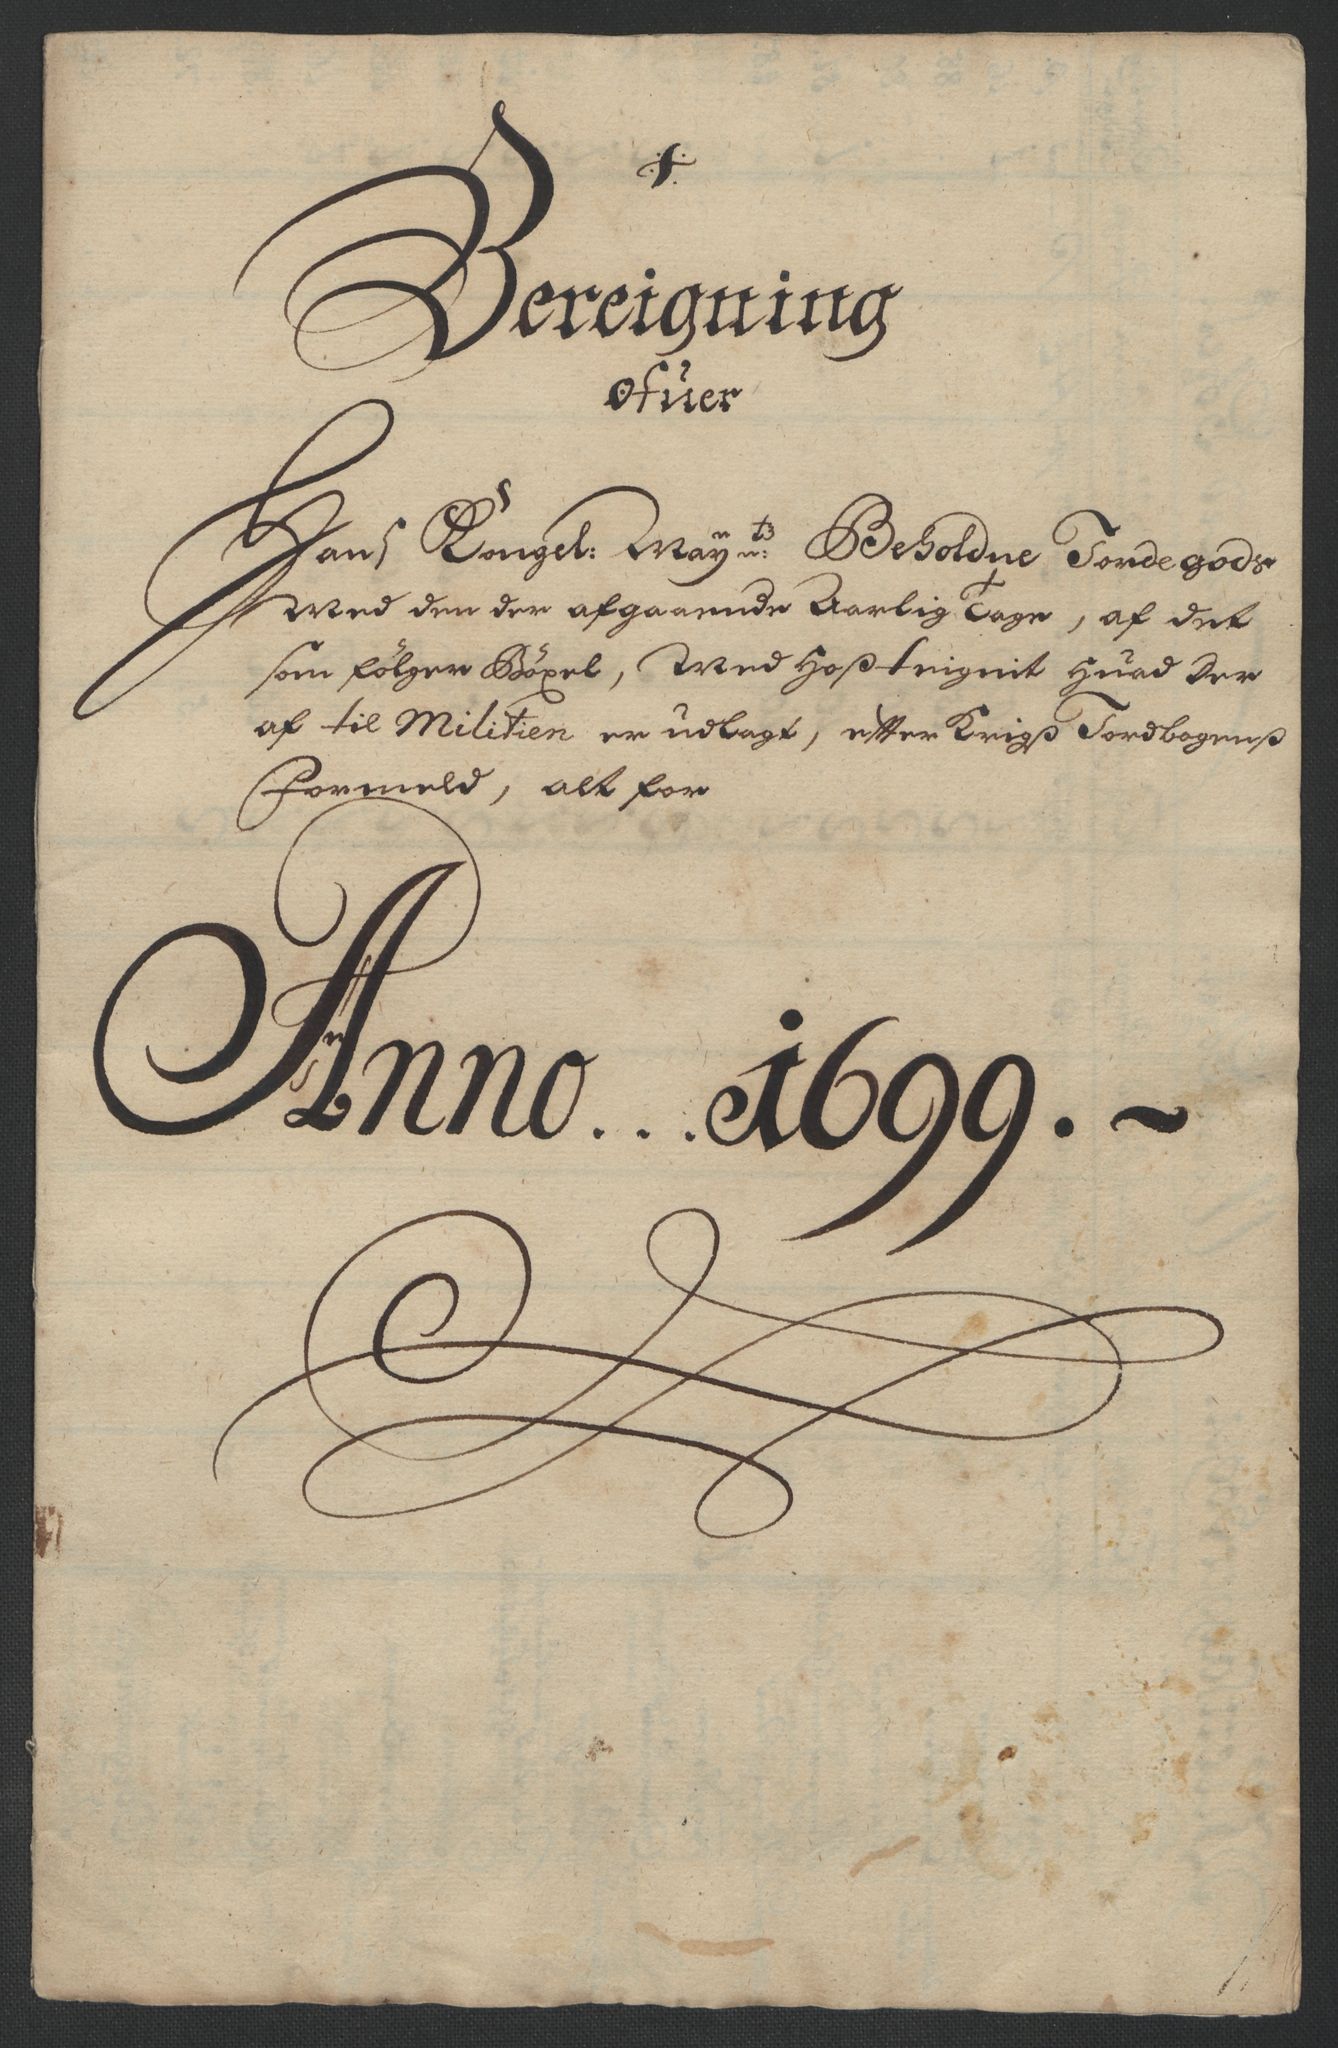 Bereigning
Ofuer
Hans Kongel: Maytz: Beholdne Jordegods
Med den der afgaaende Aarlig Tage, af det
som følger Bøxel, Med hoßteignit huad der
af til Militien er udlagt, etter Krigß Jordbogenß
Formeld, alt for
Anno ... 1699. ~